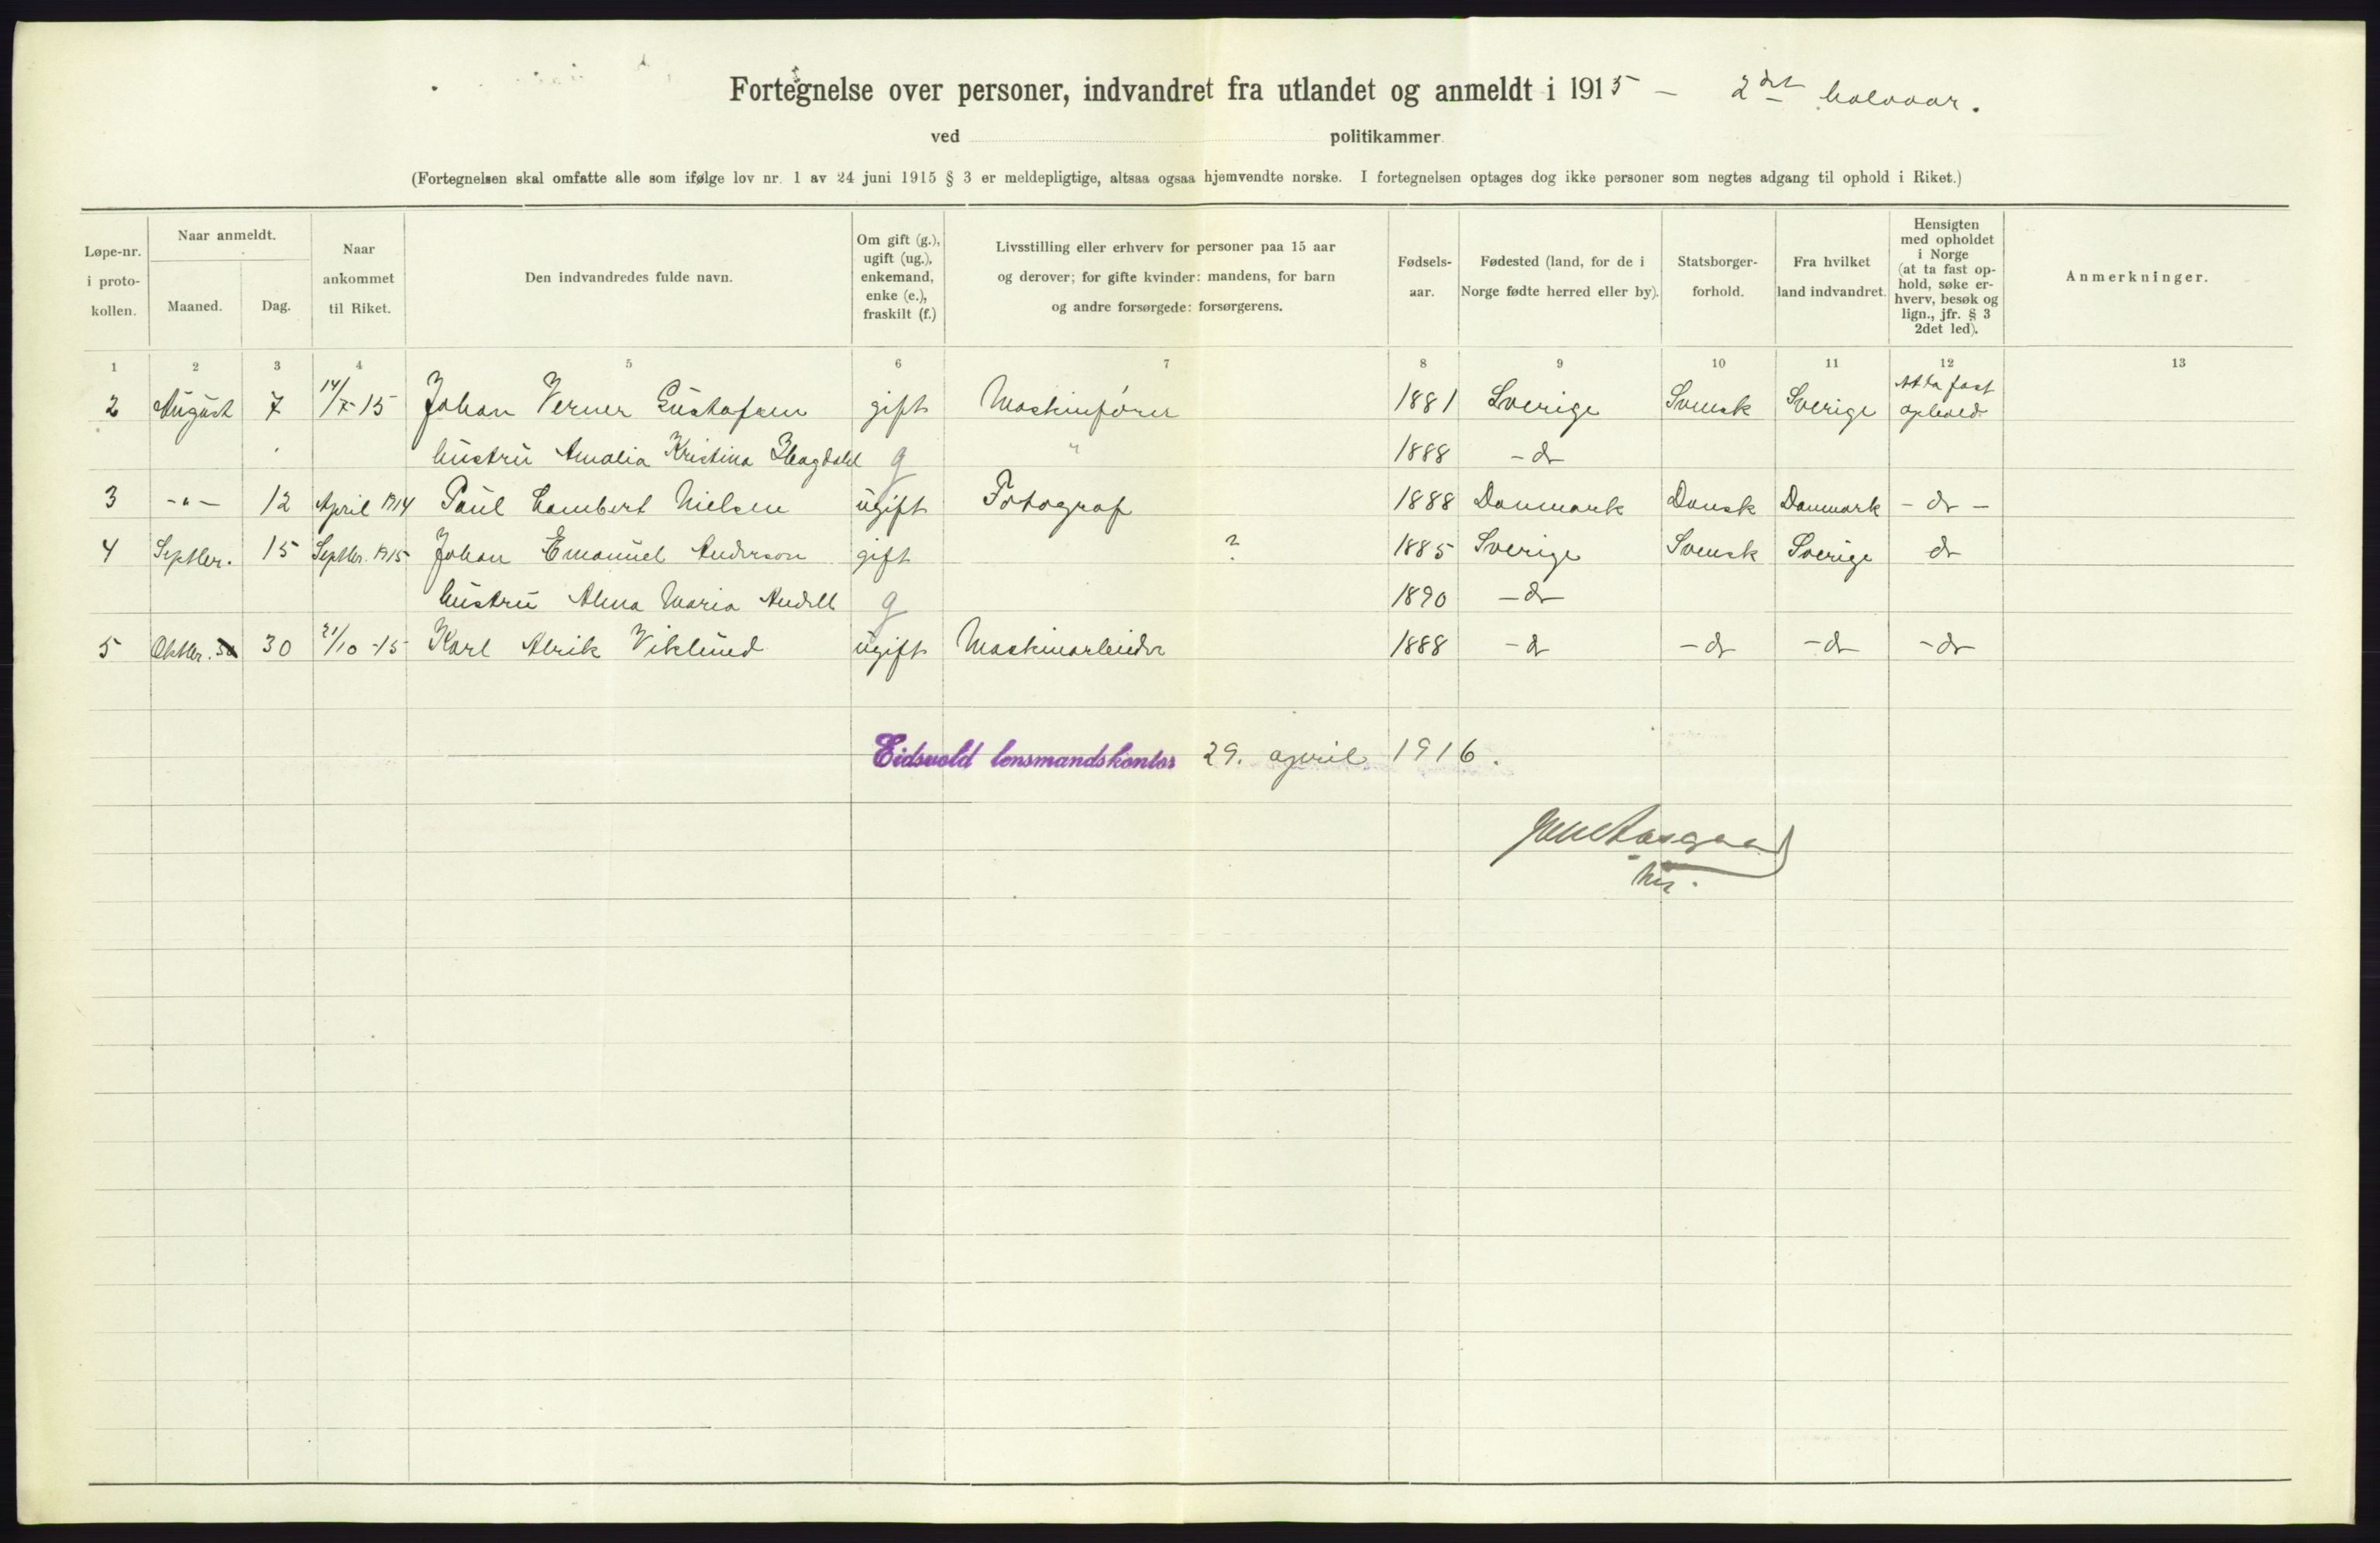 Fortegnelse over personer, indvandret fra utlandet og anmeldt i 1915 – 2det halvaar.
ved politikammer
(Fortegnelsen skal omfatte alle som ifølge lov nr. 1 av 24 juni 1915 § 3 er meldepligtige, altsaa ogsaa hjemvendte norske. I fortegnelsen optages dog ikke personer som negtes adgang til ophold i Riket.)
Løpe-nr. i proto-kollen.
Naar anmeldt.
Maaned.
Dag.
Naar ankommet til Riket.
Den indvandredes fulde navn.
Om gift (g.), ugift (ug.), enkemand, enke (e.), fraskilt (f.)
Livsstilling eller erhverv for personer paa 15 aar og derover; for gifte kvinder: mandens, for barn og andre forsørgede: forsørgerens.
Fødsels-aar.
Fødested (land, for de i Norge fødte herred eller by).
Statsborger-forhold.
Fra hvilket land indvandret.
Hensigten med opholdet i Norge (at ta fast op-hold, søke er-hverv, besøk og lign., jfr. § 3 2det led).
Anmerkninger.
1 2 3 4 5 6 7 8 9 10 11 12 13
2 August 7 14/7 15 Johan Verner Gustafsen gift Maskinfører 1881 Sverige Svensk Sverige At ta fast ophold
hustru Amalia Kristina g " 1888 – do
3 -"- 12 April 1914 Paul Lambert Nielsen ugift Fotograf 1888 Danmark Dansk Danmark – do –
4 Septbr. 15 Septbr. 1915 Johan Emanuel Anderson gift ? 1885 Sverige Svensk Sverige do
hustru Alma Maria g 1890 – do
5 Oktbr. 30 21/10 -15 Karl Alrik Viklund ugift Maskinarbeider 1888 – do – do – do – do
Eidsvold lensmandskontor 29. april 1916.